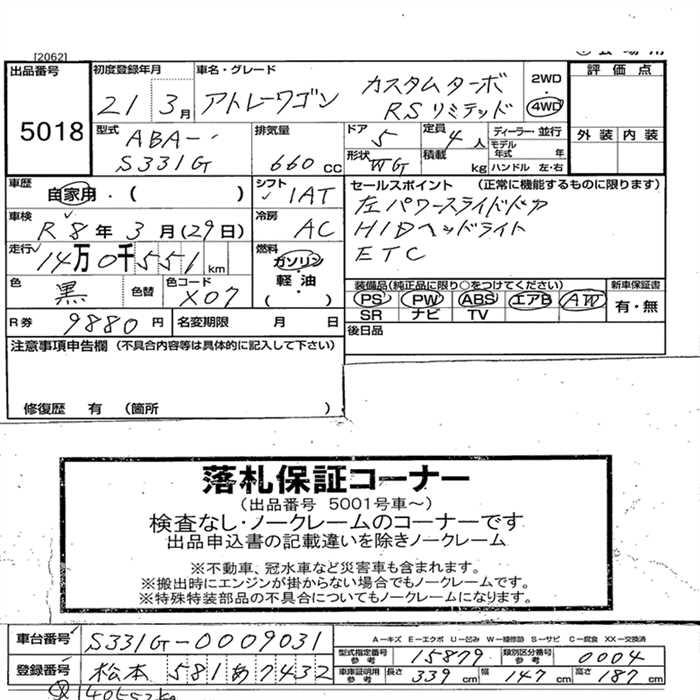 [2062]
出品番号 5018
初度登録年月 21 3月
車名・グレード アトレーワゴン カスタムターボ RSリミテッド
2WD
4WD
評価点
外装 内装
型式 ABA- S331G
排気量 660cc
ドア 5
定員 4人
形状 WG
積載 kg
ディーラー・並行
モデル年式 年
ハンドル 左・右
車歴 自家用・( )
シフト ✓ IAT
セールスポイント (正常に機能するものに限ります)
左パワースライドドア
HIDヘッドライト
ETC
車検 R8年3月(29日)
冷房 AC
走行 14万0千551km
燃料 ガソリン・軽油・( )
色 黒
色替
色コード X07
装備品(純正品に限り○をつけてください)
PS PW ABS エアB AW
SR ナビ TV
新車保証書 有・無
R券 9880円
名変期限 月 日
後日品
注意事項申告欄 (不具合内容等は具体的に記入して下さい)
修復歴 有 (箇所 )
落札保証コーナー
(出品番号 5001号車~)
検査なし・ノークレームのコーナーです
出品申込書の記載違いを除きノークレーム
※不動車、冠水車など災害車も含まれます。
※搬出時にエンジンが掛からない場合でもノークレームです。
※特殊特装部品の不具合についてもノークレームになります。
A-キズ E-エクボ U-凹み W-補修跡 S-サビ C-腐食 XX-交換済
車台番号 S331G-0009031
型式指定番号 参考 15879
類別区分番号 参考 0004
登録番号 松本 581 あ 7432
車庫証明用 参考 長さ 339cm 幅 147cm 高さ 187cm